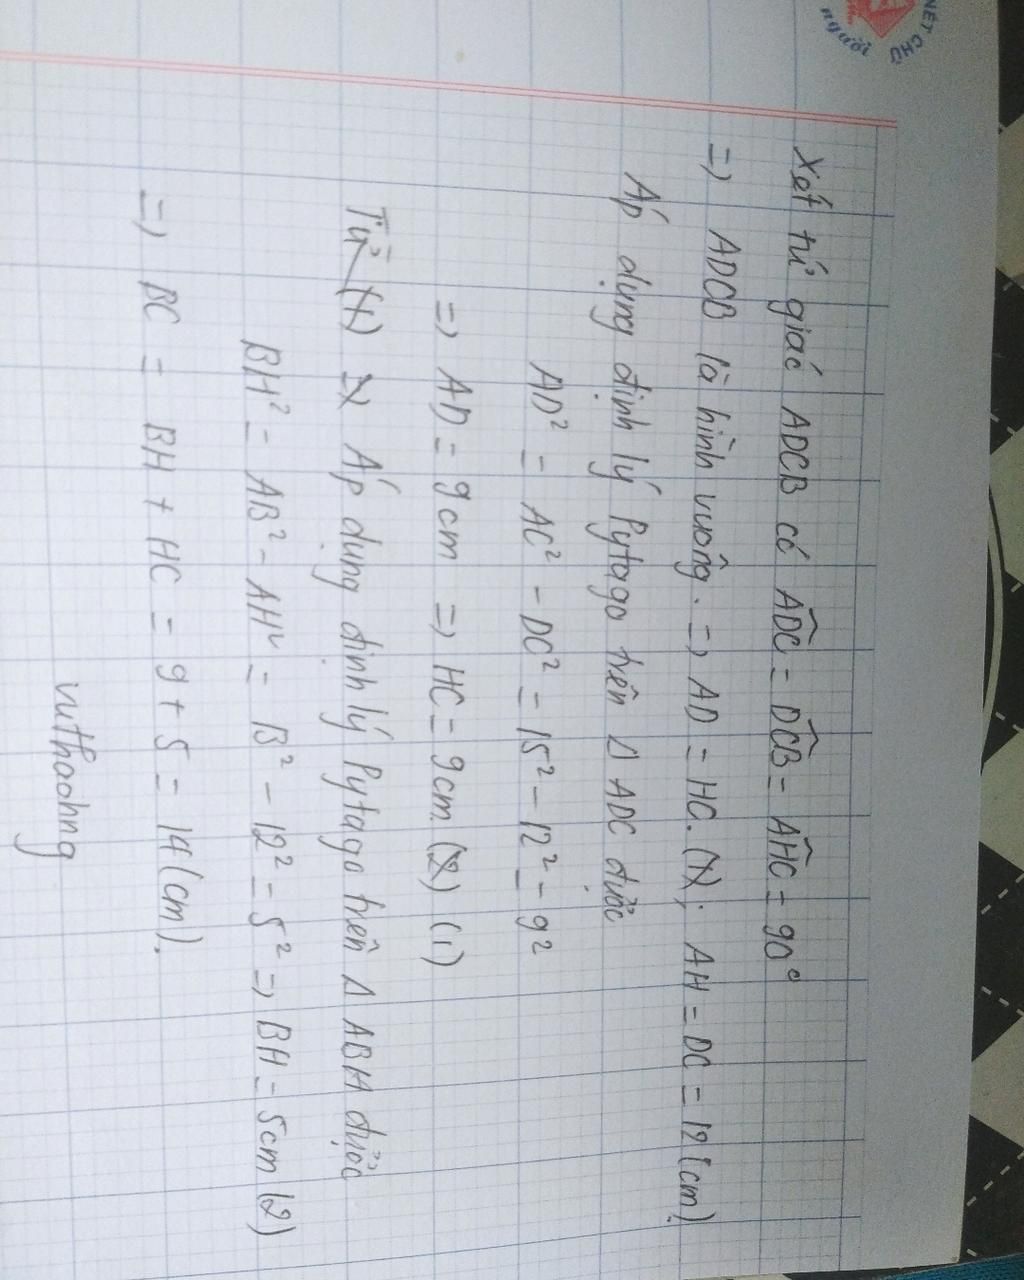 NÉT CHỮ
người
Xét tứ giác ADCB có ADC = DCB = AHC = 90°
=) ADCB là hình vuông. =) AD = HC. (1); AH = DC = 12 (cm)
Áp dụng định lý Pytago trên Δ ADC được
AD² = AC² - DC² = 15² - 12² = 9²
=) AD = 9cm =) HC = 9cm (2) (1)
Từ (1) =) Áp dụng định lý Pytago trên Δ ABH được
BH² = AB² - AH² = 13² - 12² = 5² =) BH = 5cm (2)
=) BC = BH + HC = 9 + 5 = 14 (cm).
vuthaohng